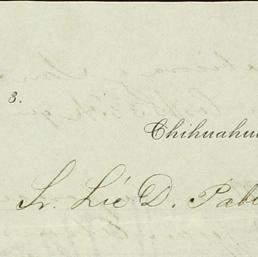 8.
Chihuahua
Sr. Lic D. Pab